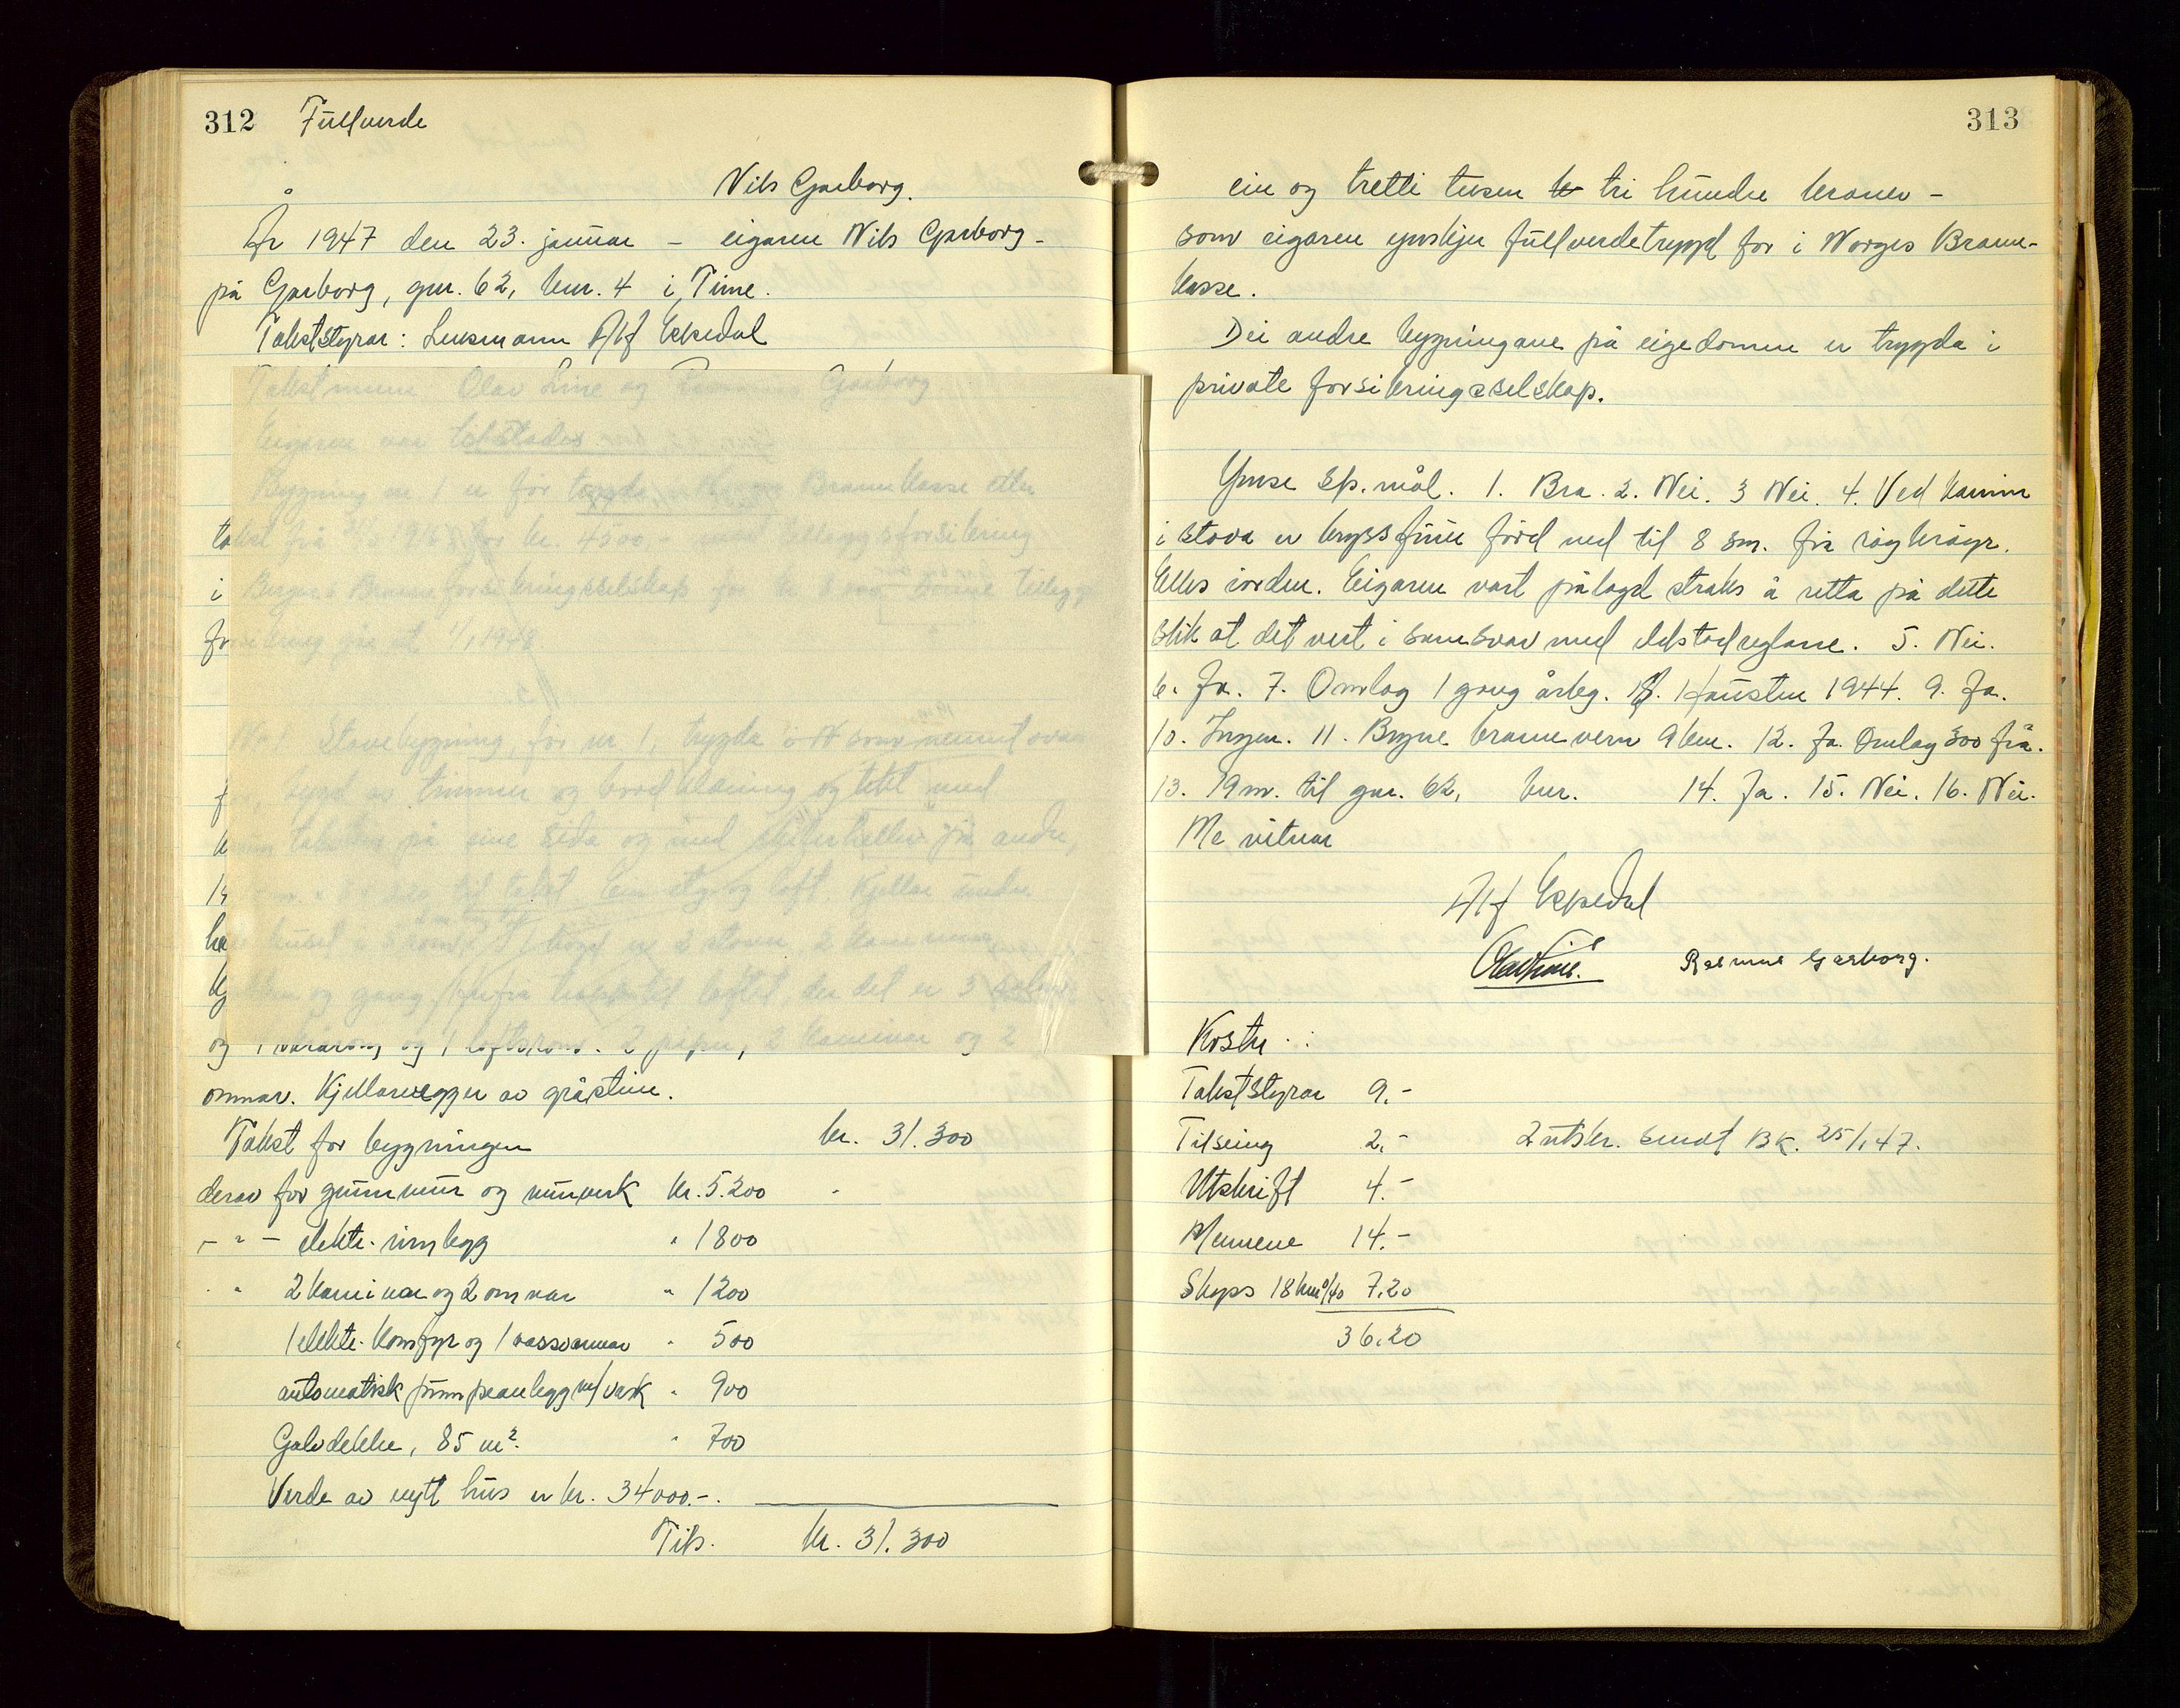 312 Fullverde
Nils Garborg.
År 1947 den 23. januar – eigaren Nils Garborg –
på Garborg, gnr. 62, bnr. 4 i Time.
Takststyrar: Lensmann Alf Eskedal
Takstmenn Olav Line og Garborg
Eigaren var tilstades
Bygning nr. 1 er før trygda Brannkasse etter
takst frå for kr. 4500.- tilleggsforsikring
i Bergens Brannforsikringsselskap for kr. 8000 tillegg
forsikring går ut 1/1 1948.
Nr 1 Stovebygning før nr. 1, trygda i N som nemnt ovan
bygd av timmer og bordklædning og tekt med
på eine sida og med skiferheller på andre,
til takst. Ein etg. og loft. Kjellar under
huset 2 stover, 2
og gang. trapp til loftet der det er 3
og og 1 loftsrom. 2 piper, 2 kaminar og 2
omnar. Kjellarvegger av gråstein.
Takst for bygningen kr. 31.300
derav for grunnmur og murverk kr. 5.200
– " – elektr. innlegg " 1800
" 2 kaminar og 2 omnar " 1200
1 elektr. komfyr og 1 vassvarmar " 500
automatisk pumpeanlegg m/vask " 900
Golvdekke, 85 m². " 700
Verde av nytt hus er kr. 34000.-.
Tils. kr. 31.300
313
ein og tretti tusen tri hundre kroner –
som eigaren ynskjer fullverdetrygd for i Norges Brann-
kasse.
Dei andre bygningane på eigedomen er trygda i
private forsikringsselskap.
Ymse sp.mål. 1. Bra. 2. Nei. 3 Nei. 4. Ved kamin
i stova er kryssfiner förd ned til 8 sm. frå røykrøyr.
Elles iorden. Eigaren vart pålagd straks å retta på dette
slik at det vert i samsvar med eldstadreglane. 5. Nei.
6. Ja. 7. Omlag 1 gong årleg. 8. Hausten 1944. 9. Ja.
10. Ingen. 11. Bryne brannvern 9 km. 12. Ja. Omlag 300 frå.
13. 19 m. til gnr. 62, bnr. 14. Ja. 15. Nei. 16. Nei.
Me vitnar
Alf Eskedal
Olav Line. Rasmus Garborg.
Kostn. :
Takststyrar 9.-
Tilseing 2.-
Utskrift 4.-
Mennene 14.-
Skyss 18 km á/40 7.20
36.20
2 utskr. sendt BK. 25/1 47.